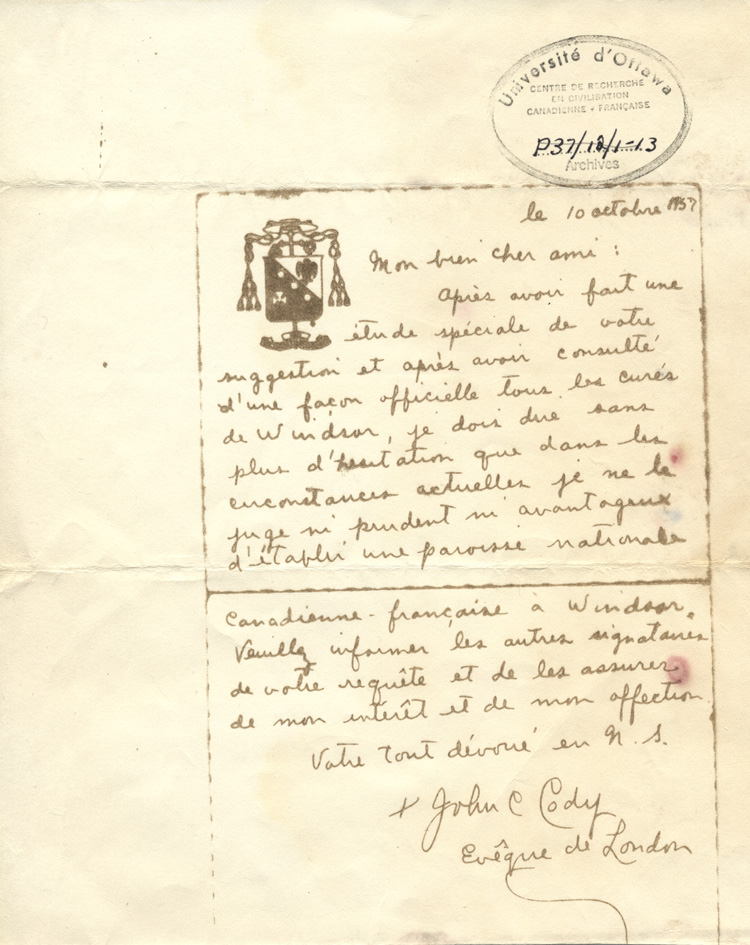 Université d'Ottawa
CENTRE DE RECHERCHE
EN CIVILISATION
CANADIENNE - FRANÇAISE
P37/12/1-13
Archives
le 10 octobre 1957
Mon bien cher ami :
Après avoir fait une
étude spéciale de votre
suggestion et après avoir consulté
d'une façon officielle tous les curés
de Windsor, je dois dire sans
plus d'hesitation que dans les
circonstances actuelles je ne le
juge ni prudent ni avantageux
d'établir une paroisse nationale
Canadienne-française à Windsor.
Veuillez informer les autres signataires
de votre requête et de les assurer
de mon intérêt et de mon affection.
Votre tout dévoué en N. S.
+ John C Cody
Evêque de London